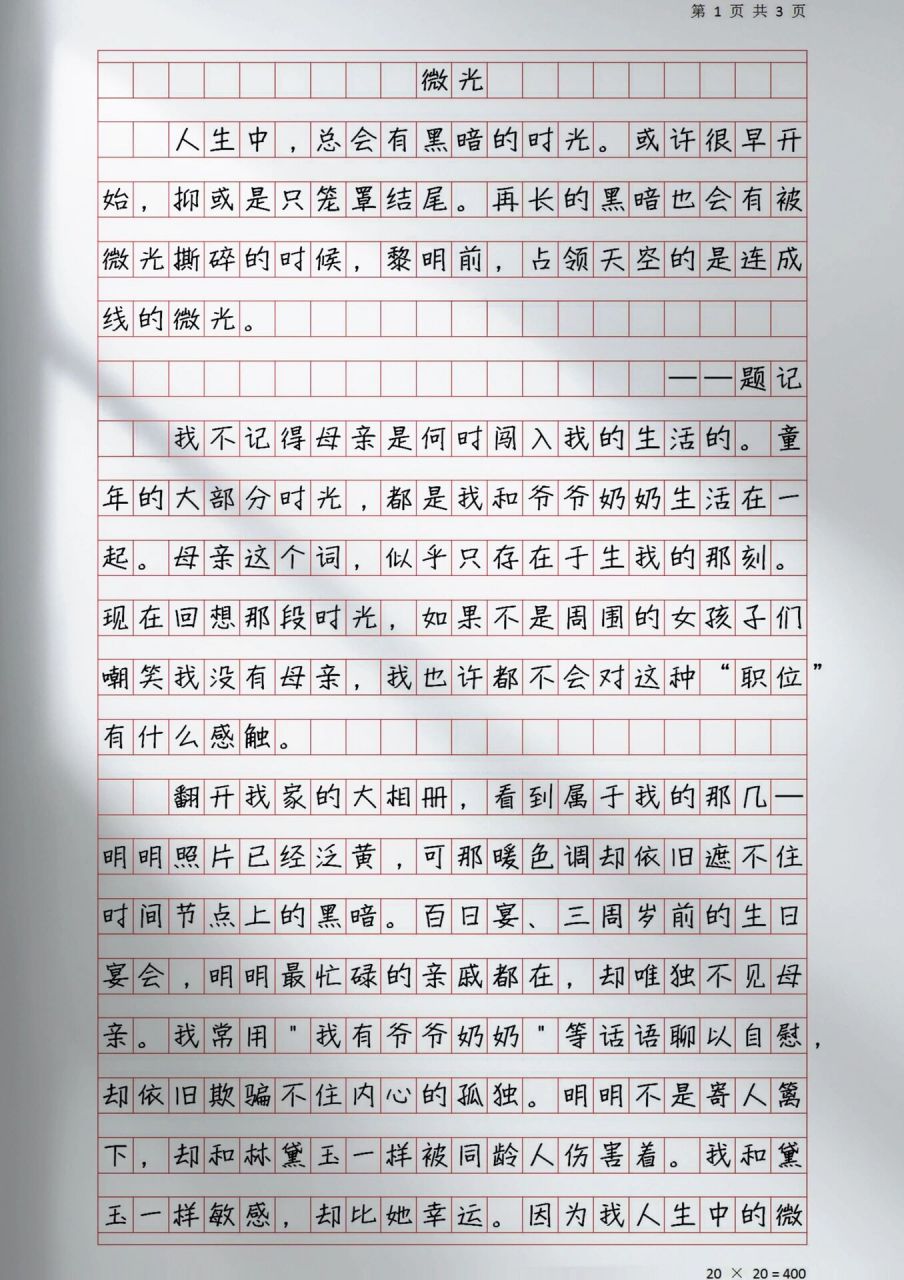 第 1 页 共 3 页
微光
人生中，总会有黑暗的时光。或许很早开
始，抑或是只笼罩结尾。再长的黑暗也会有被
微光撕碎的时候，黎明前，占领天空的是连成
线的微光。
——题记
我不记得母亲是何时闯入我的生活的。童
年的大部分时光，都是我和爷爷奶奶生活在一
起。母亲这个词，似乎只存在于生我的那刻。
现在回想那段时光，如果不是周围的女孩子们
嘲笑我没有母亲，我也许都不会对这种“职位”
有什么感触。
翻开我家的大相册，看到属于我的那几一
明明照片已经泛黄，可那暖色调却依旧遮不住
时间节点上的黑暗。百日宴、三周岁前的生日
宴会，明明最忙碌的亲戚都在，却唯独不见母
亲。我常用"我有爷爷奶奶"等话语聊以自慰，
却依旧欺骗不住内心的孤独。明明不是寄人篱
下，却和林黛玉一样被同龄人伤害着。我和黛
玉一样敏感，却比她幸运。因为我人生中的微
20 × 20 = 400